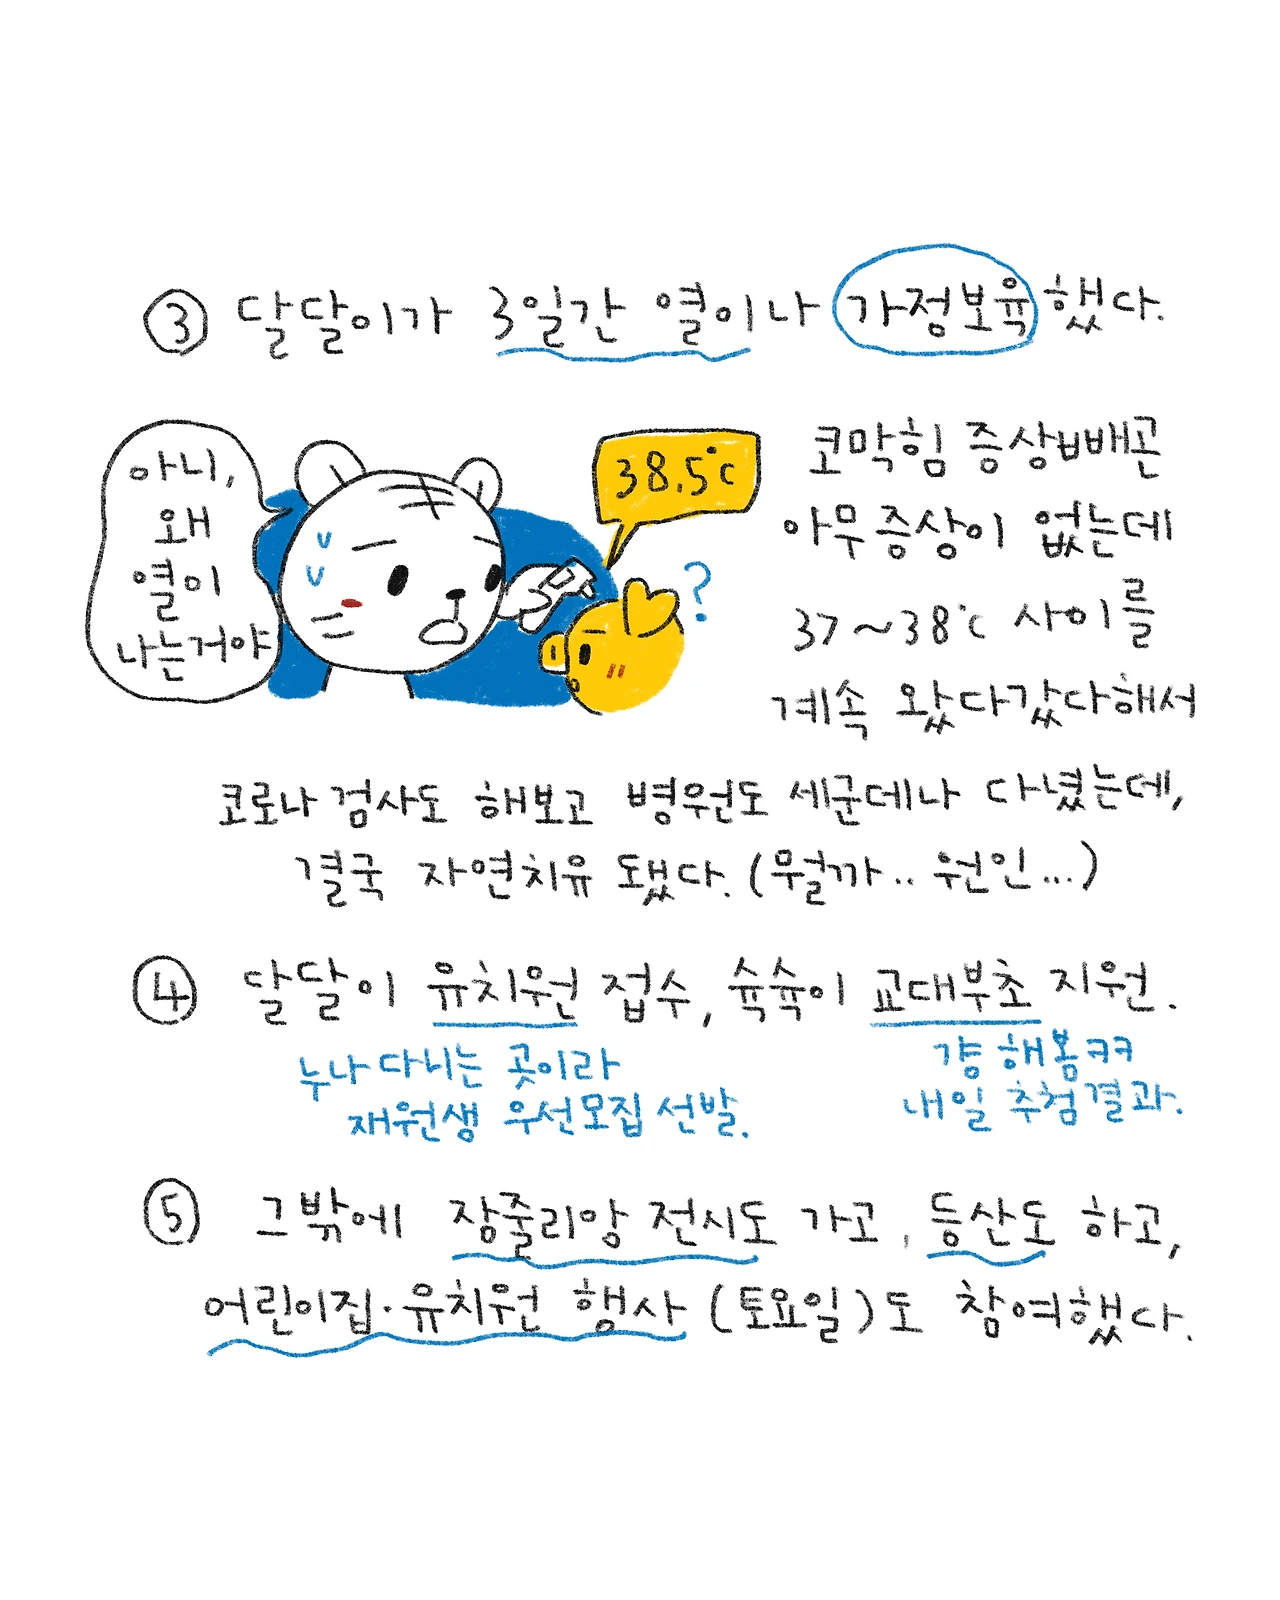 ③ 달달이가 3일간 열이나 가정보육했다.
아니,
왜
열이
나는거야
38.5℃
?
코막힘 증상빼곤
아무증상이 없는데
37~38℃ 사이를
계속 왔다갔다해서
코로나 검사도 해보고 병원도 세군데나 다녔는데,
결국 자연치유 됐다. (뭘까.. 원인...)
④ 달달이 유치원 접수, 슉슉이 교대부초 지원.
누나 다니는 곳이라
재원생 우선모집 선발.
걍 해봄ㅋㅋ
내일 추첨결과.
⑤ 그밖에 장줄리앙 전시도 가고, 등산도 하고,
어린이집·유치원 행사 (토요일)도 참여했다.